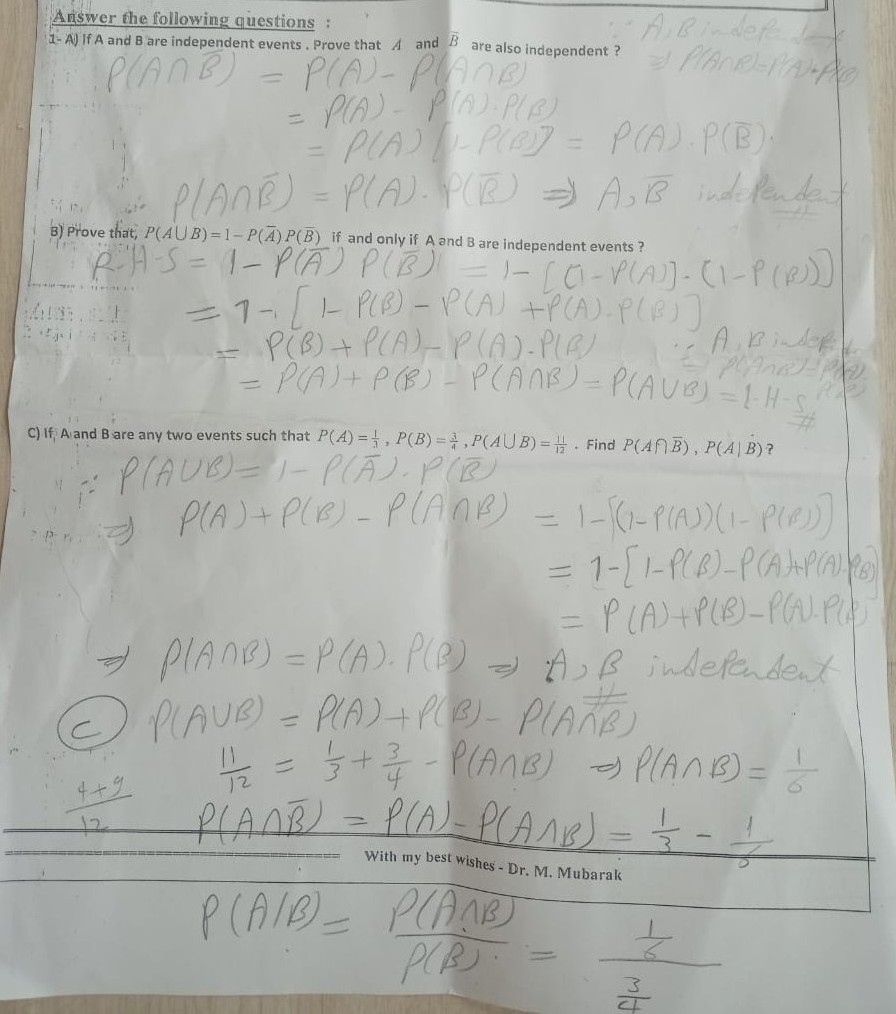 Answer the following questions :
1- A) If A and B are independent events . Prove that A and B̅ are also independent ?
∵ A, B indep
⇒ P(A∩B)=P(A)·P(B)
P(A∩B̅) = P(A) - P(A∩B)
= P(A) - P(A).P(B)
= P(A) [1 - P(B)] = P(A).P(B̅).
∴ P(A∩B̅) = P(A).P(B̅) ⇒ A, B̅ independent #
B) Prove that, P(A∪B)=1−P(A̅)P(B̅) if and only if A and B are independent events ?
R.H.S = 1 - P(A̅) P(B̅) = 1 - [(1 - P(A)].(1 - P(B))]
= 1 - [1 - P(B) - P(A) + P(A).P(B)]
= P(B) + P(A) - P(A).P(B) ∵ A, B indep
⇒ P(A∩B)=P(A).P(B)
= P(A) + P(B) - P(A∩B) = P(A∪B) = L.H.S #
C) If, A and B are any two events such that P(A)=1/3 , P(B)=3/4 , P(A∪B)=11/12 . Find P(A∩B̅) , P(A|B)?
∵ P(A∪B) = 1 - P(A̅).P(B̅)
⇒ P(A) + P(B) - P(A∩B) = 1 - [(1-P(A))(1-P(B))]
= 1 - [1 - P(B) - P(A) + P(A).P(B)]
= P(A) + P(B) - P(A).P(B)
⇒ P(A∩B) = P(A).P(B) ⇒ A, B independent #
C P(A∪B) = P(A) + P(B) - P(A∩B)
11/12 = 1/3 + 3/4 - P(A∩B) ⇒ P(A∩B) = 1/6
4+9/12
P(A∩B̅) = P(A) - P(A∩B) = 1/3 - 1/6
With my best wishes - Dr. M. Mubarak
P(A/B) = P(A∩B)/P(B) = 1/6 / 3/4